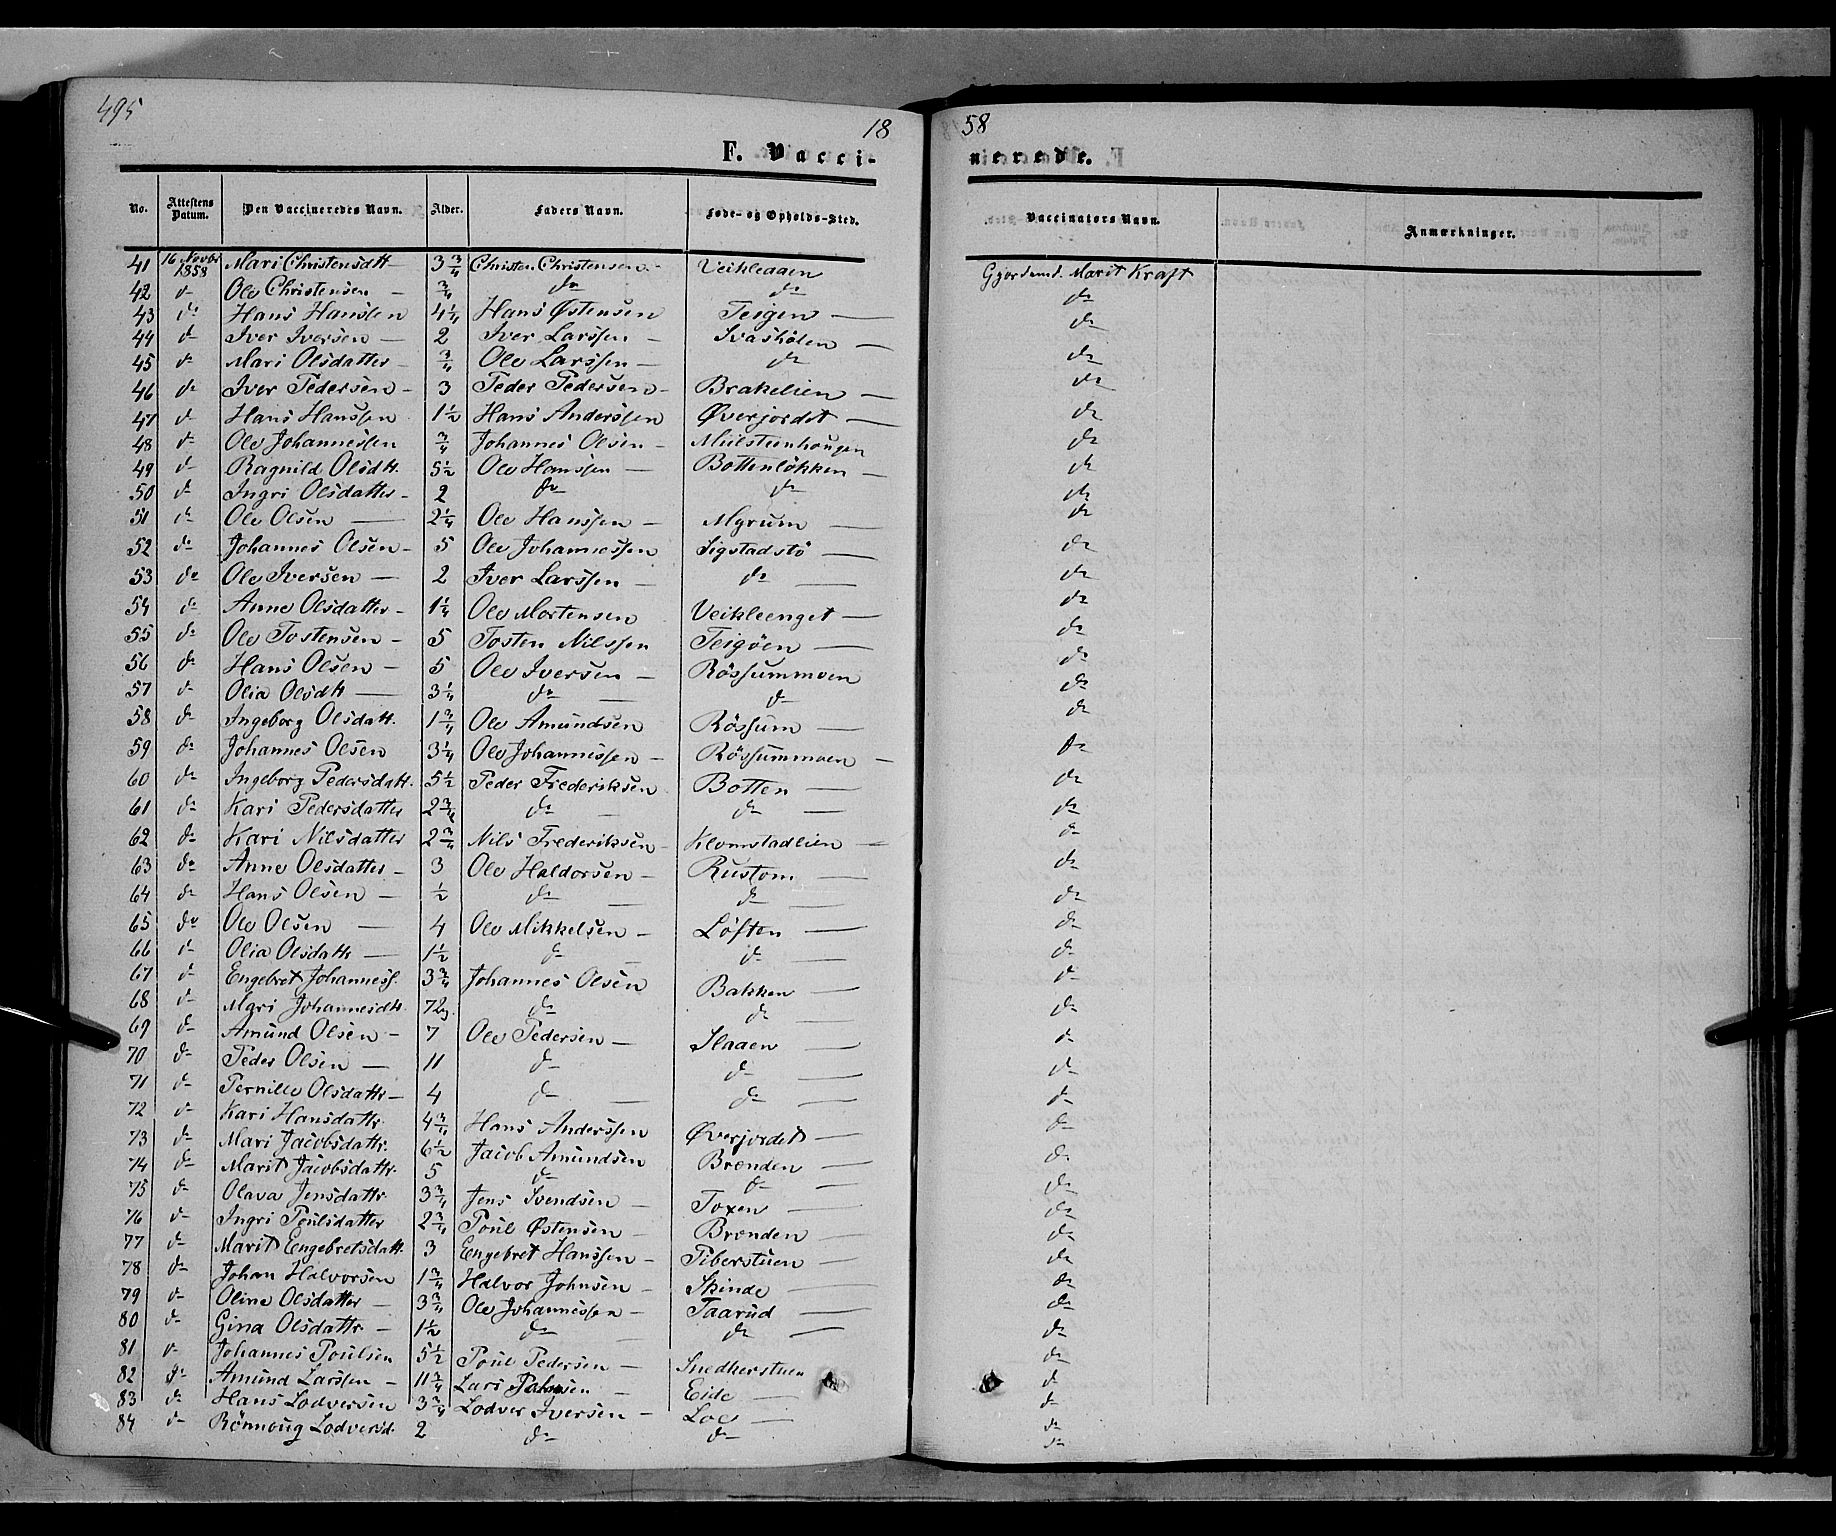 495
18 58
F. Vaccinerede.
No. Attestens Datum. Den Vaccineredes Navn. Alder. Faders Navn. Føde- og Opholds-Sted. Vaccinators Navn. Anmærkninger.
41 16 Novbr 1858 Mari Christensdtt 3 3/4 Christen Christensen Veikleaaen Gjordemd. Marit Kraft
42 do Ole Christensen 3/4 do do do
43 do Hans Hanssen 4 1/4 Hans Østensen Teigen do
44 do Iver Iversen 2 Iver Larssen Svashölen do
45 do Mari Olsdatter 3/4 Ole Larssen do do
46 do Iver Pedersen 3 Peder Pedersen Brakelien do
47 do Hans Hanssen 1 1/2 Hans Anderssen Øverjordet do
48 do Ole Johannessen 3/4 Johannes Olsen Mulsteenhougen do
49 do Ragnild Olsdtt. 5 1/2 Ole Hanssen Bottenlökken do
50 do Ingri Olsdatter 2 do do do
51 do Ole Olsen 2 1/4 Ole Hanssen Mgrum do
52 do Johannes Olsen 5 Ole Johannessen Sigstadstö do
53 do Ole Iversen 2 Iver Larssen do do
54 do Anne Olsdatter 1 1/4 Ole Mortensen Veikleenget do
55 do Ole Tostensen 5 Tosten Nilssen Teigöen do
56 do Hans Olsen 5 Ole Iversen Rössummoen do
57 do Olia Olsdtt 3 1/4 do do do
58 do Ingeborg Olsdatt. 1 3/4 Ole Amundsen Rössum do
59 do Johannes Olsen 3 1/4 Ole Johannessen Rössummoen do
60 do Ingeborg Pedersdatt. 5 1/2 Peder Frederiksen Botten do
61 do Kari Pedersdatter 2 3/4 do do do
62 do Kari Nilsdatter 2 3/4 Nils Frederiksen Klomstadlien do
63 do Anne Olsdatter 3 Ole Haldorsen Rustom do
64 do Hans Olsen 1/2 do do do
65 do Ole Olsen 4 Ole Mikkelsen Löften do
66 do Olia Olsdatt 1 1/2 do do do
67 do Engebret Johanness. 3 3/4 Johannes Olsen Bakken do
68 do Mari Johannesdtt. do do do
69 do Amund Olsen 7 Ole Pedersen Slaaen do
70 do Peder Olsen 11 do do do
71 do Pernille Olsdattr 4 do do do
72 do Kari Hansdattr. 4 3/4 Hans Anderssen Øverjordet do
73 do Mari Jacobsdattr. 6 1/2 Jacob Amundsen Brenden do
74 do Marit Jacobsdattr. 5 do do do
75 do Olava Jensdattr 3 3/4 Jens Svendsen Toxen do
76 do Ingri Poulsdatter 2 3/4 Poul Østensen Brenden do
77 do Marit Engebretsdatt. 3 Engebret Hanssen Piberstuen do
78 do Johan Halvorsen 1 3/4 Halvor Johnsen Skinde do
79 do Oline Olsdatter 3 3/4 Ole Johannessen Taarud do
80 do Gina Olsdattr 1 1/2 do do do
81 do Johannes Poulsen 5 1/2 Poul Pedersen Snedkerstuen do
82 do Amund Larssen 11 3/4 Lars Eide do
83 do Hans Lodversen 3 3/4 Lodver Iversen Loe do
84 do Rönnoug Lodversd. 2 do do do
do